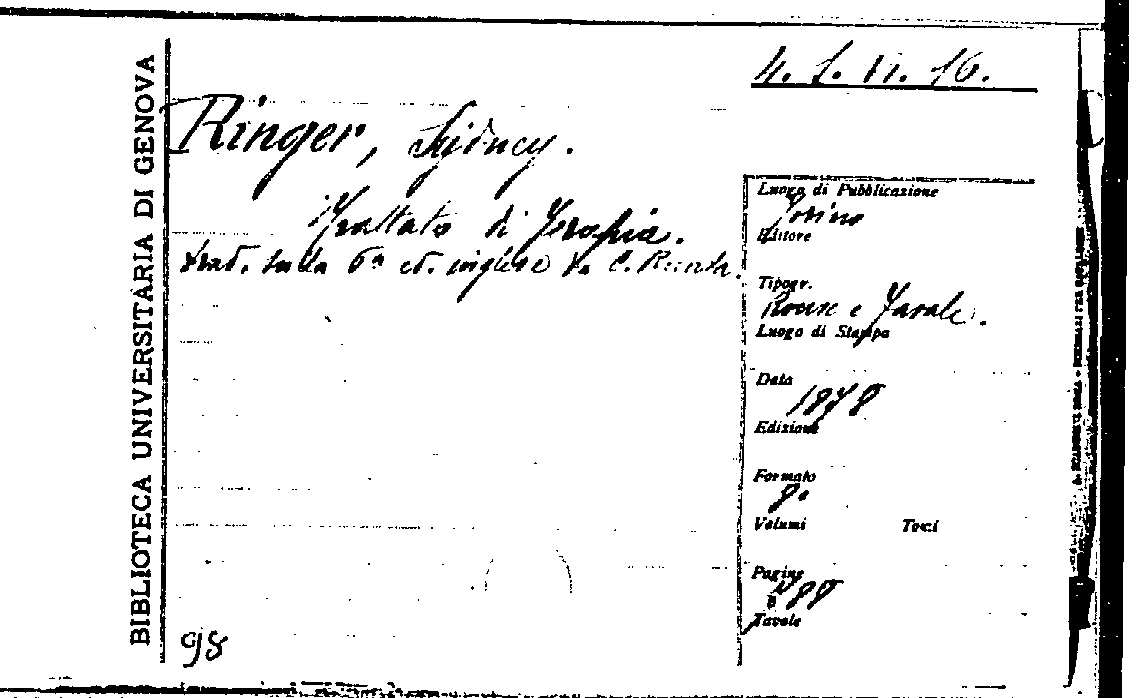 BIBLIOTECA UNIVERSITARIA DI GENOVA
4. 1. 11. 16.
Ringer, Sydney.
Trattato di Terapia.
trad. sulla 6ª ed. inglese da C.
Luogo di Pubblicazione
Torino
Editore
Tipogr.
Roux e Favale.
Luogo di Stampa
Data
1878
Edizione
Formato
8°
Volumi Tomi
Pagine
488
Tavole
98